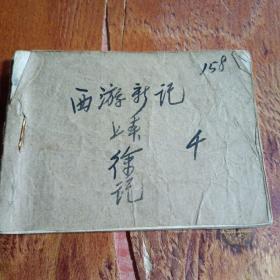 158
西游新记
上集
徐记
4